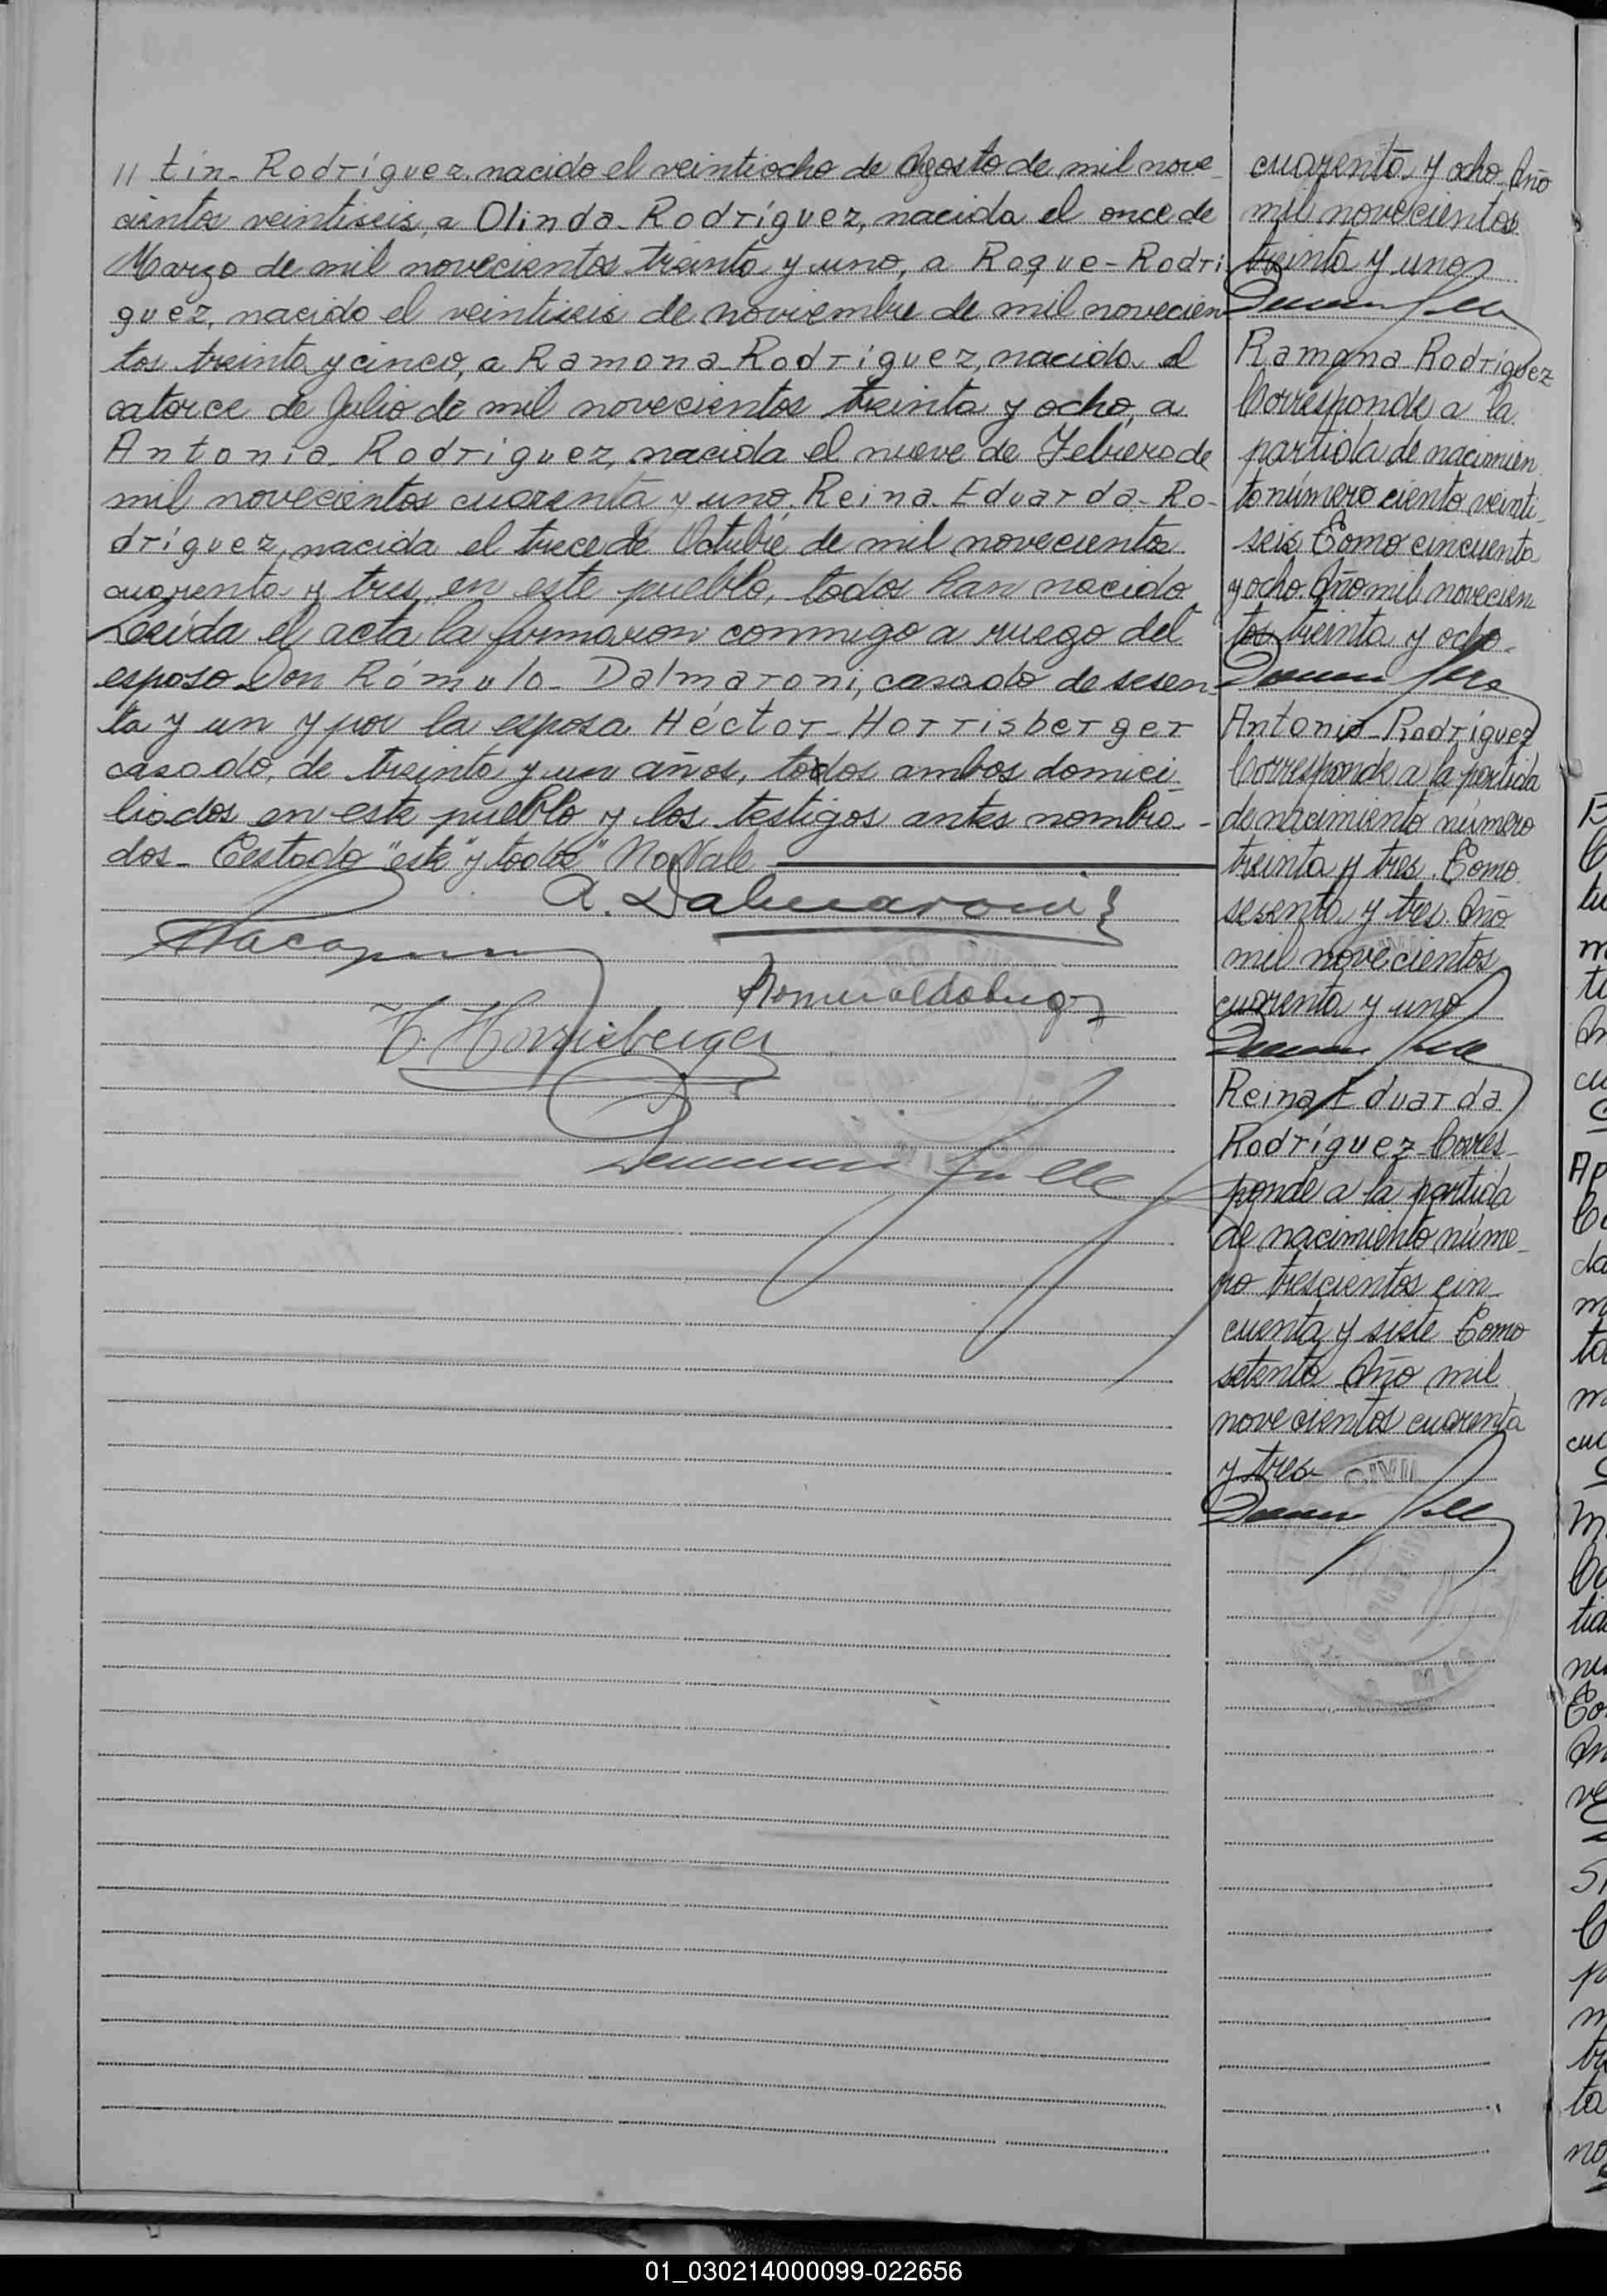 // tín-Rodríguez, nacido el veintiocho de Agosto de mil nove-
cientos veintiseis, a Olinda-Rodríguez, nacida el once de
Marzo de mil novecientos treinta y uno, a Roque-Rodrí
guez, nacido el veintiseis de noviembre de mil novecien
tos treinta y cinco, a Ramona-Rodríguez, nacida el
catorce de Julio de mil novecientos treinta y ocho, a
Antonia-Rodríguez, nacida el nueve de Febrero de
mil novecientos cuarenta y uno. Reina-Eduarda-Ro-
dríguez, nacida el trece de Octubre de mil novecientos
cuarenta y tres, en este pueblo, todos han nacido
Leída el acta la firmaron conmigo a ruego del
esposo Don Rómulo-Dalmaroni, casado de sesen-
ta y un y por la esposa Héctor-Horrisberger
casado, de treinta y un años, todos ambos domici-
liados en este pueblo y los testigos antes nombra-
dos- Testado "este" y todos" No Vale
A. Dalmaroni
H. Horrisberger
cuarenta y ocho. Año
mil novecientos
treinta y uno
Ramona-Rodríguez
Corresponde a la
partida de nacimien
to número ciento veinti-
seis. Tomo cincuenta
y ocho. Año mil novecien
tos treinta y ocho.
Antonia-Rodríguez
Corresponde a la partida
de nacimiento número
treinta y tres. Tomo
sesenta y tres. Año
mil novecientos
cuarenta y uno
Reina Eduarda
Rodríguez-Corres-
ponde a la partida
de nacimiento núme-
ro trescientos cin-
cuenta y siete Tomo
setenta Año mil
novecientos cuarenta
y tres-
CIVIL
01_030214000099-022656